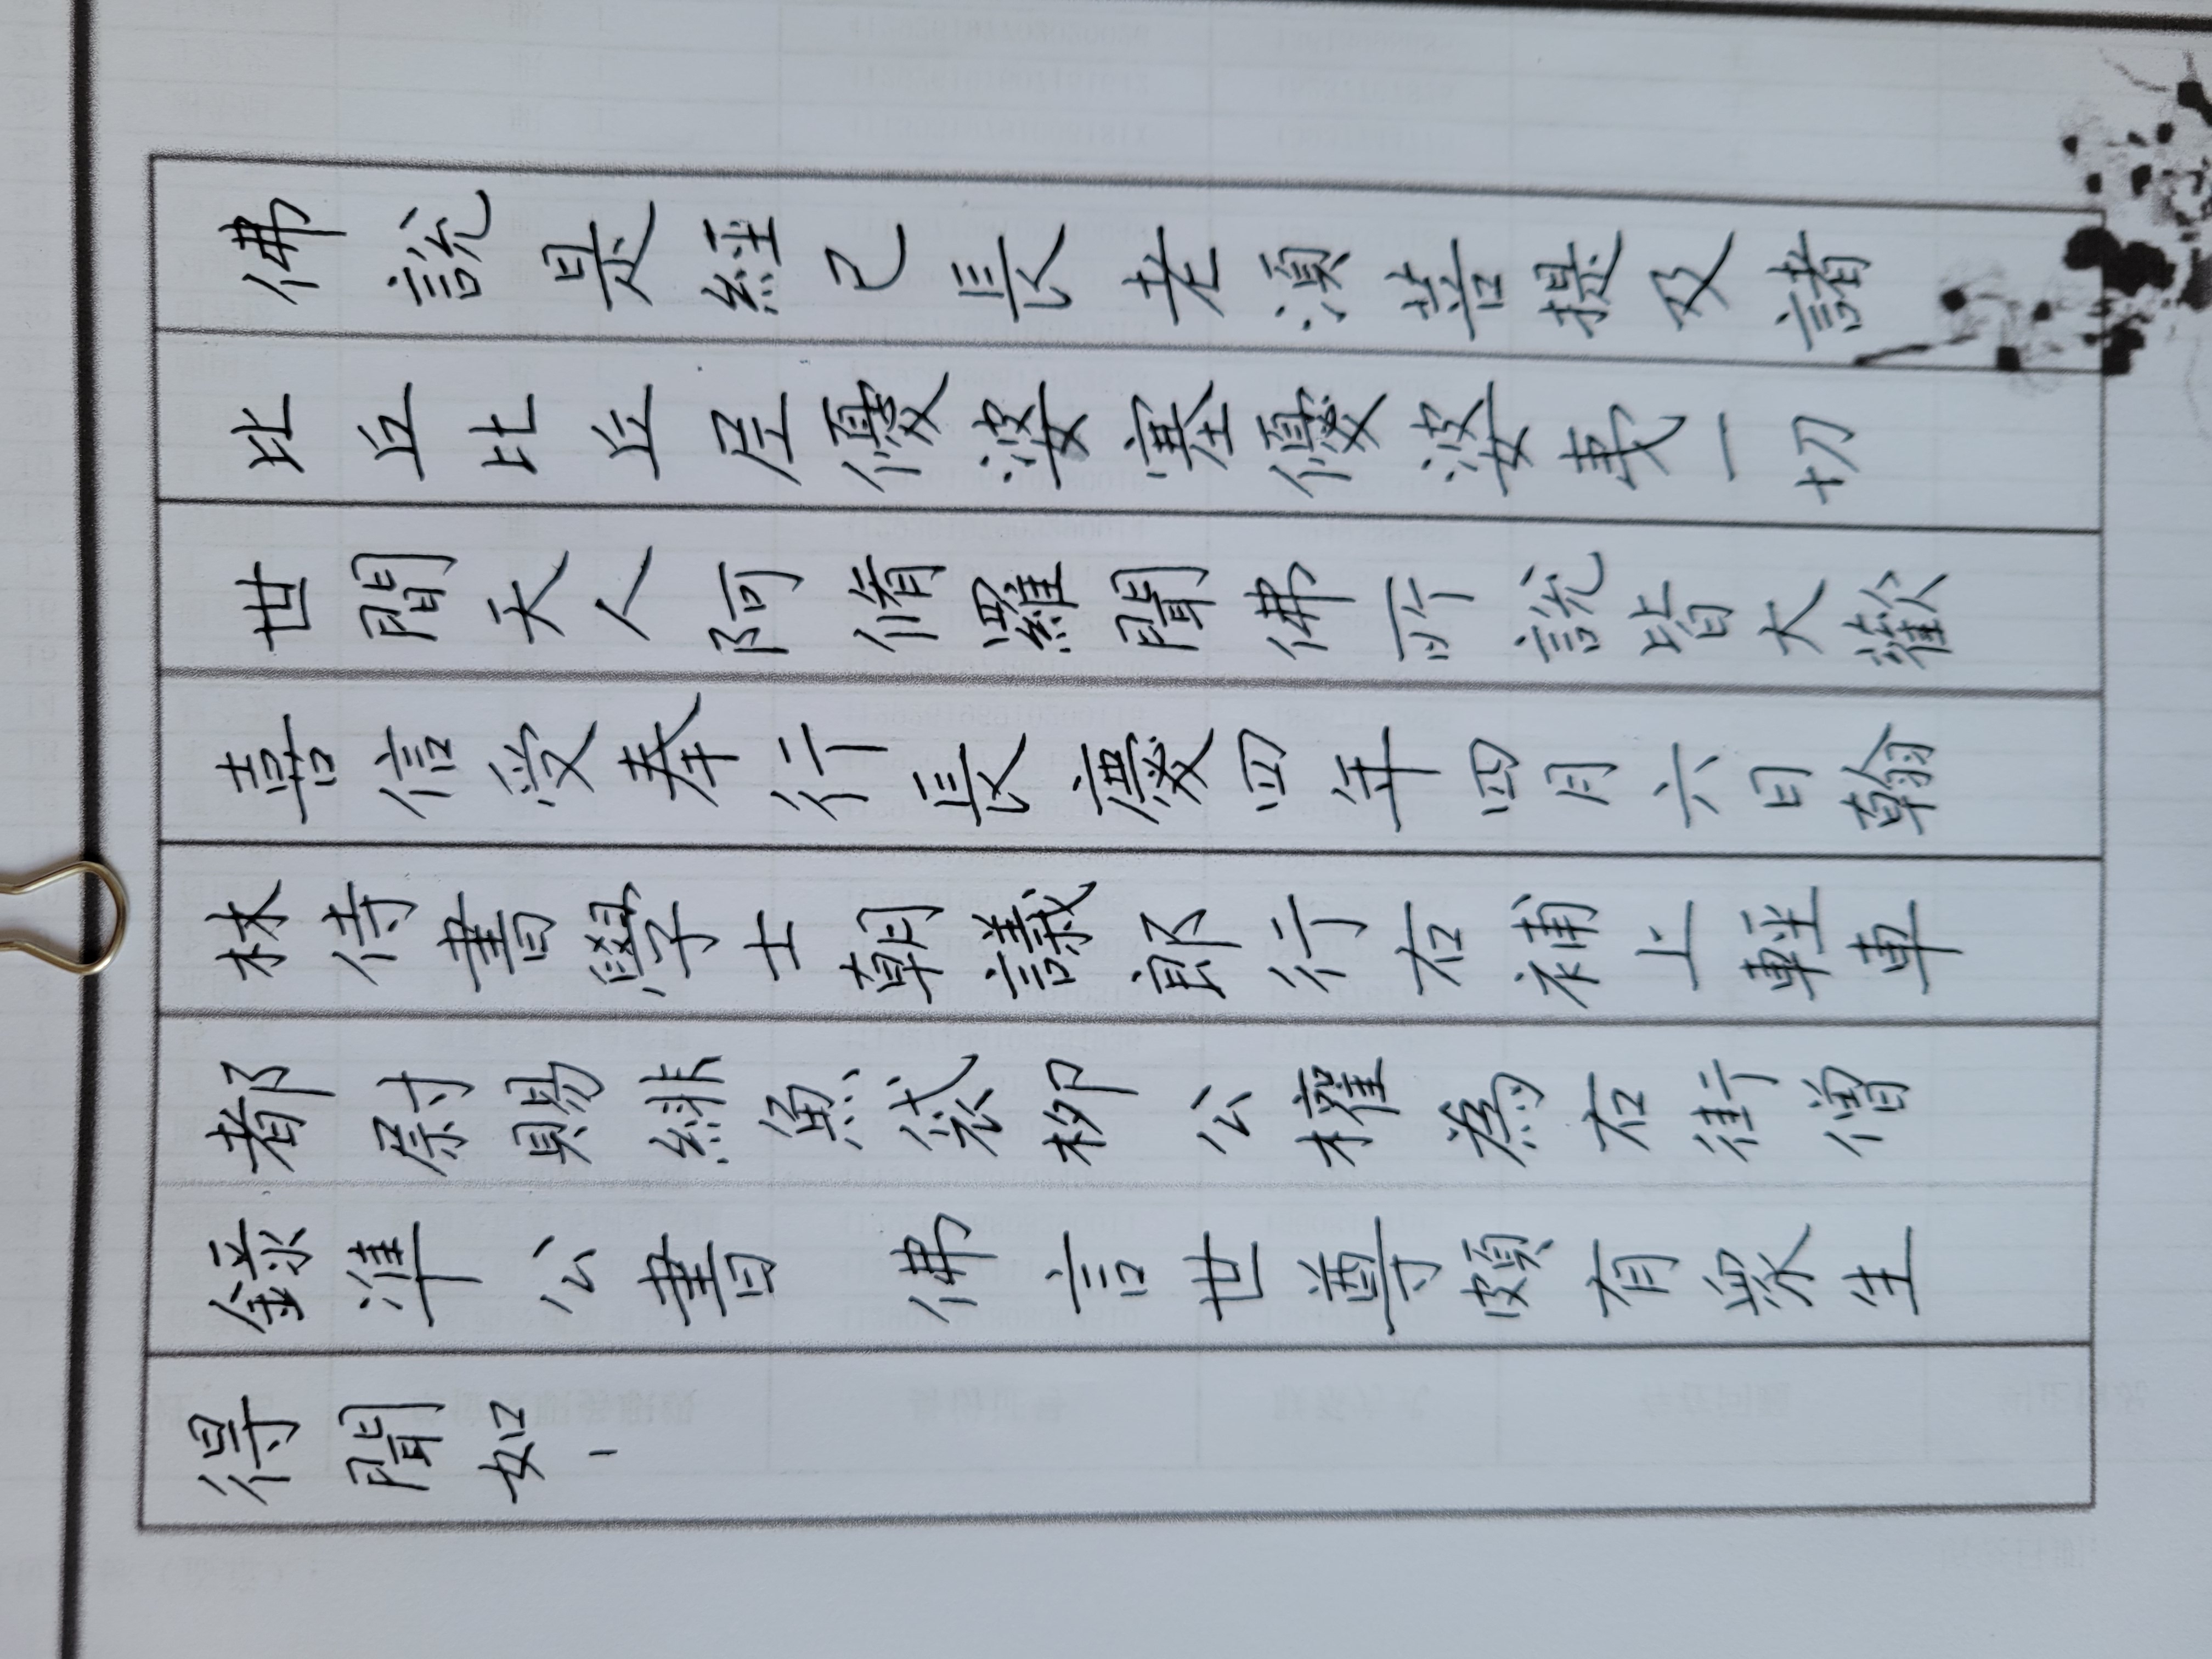 佛說是經已長老須菩提及諸
比丘比丘尼優婆塞優婆夷一切
世間天人阿脩羅聞佛所說皆大歡
喜信受奉行長慶四年四月六日翰
林侍書學士朝議郎行右補上輕車
都尉賜緋魚袋柳公權為右街僧
錄準公書 佛言世尊頗有眾生
得聞如